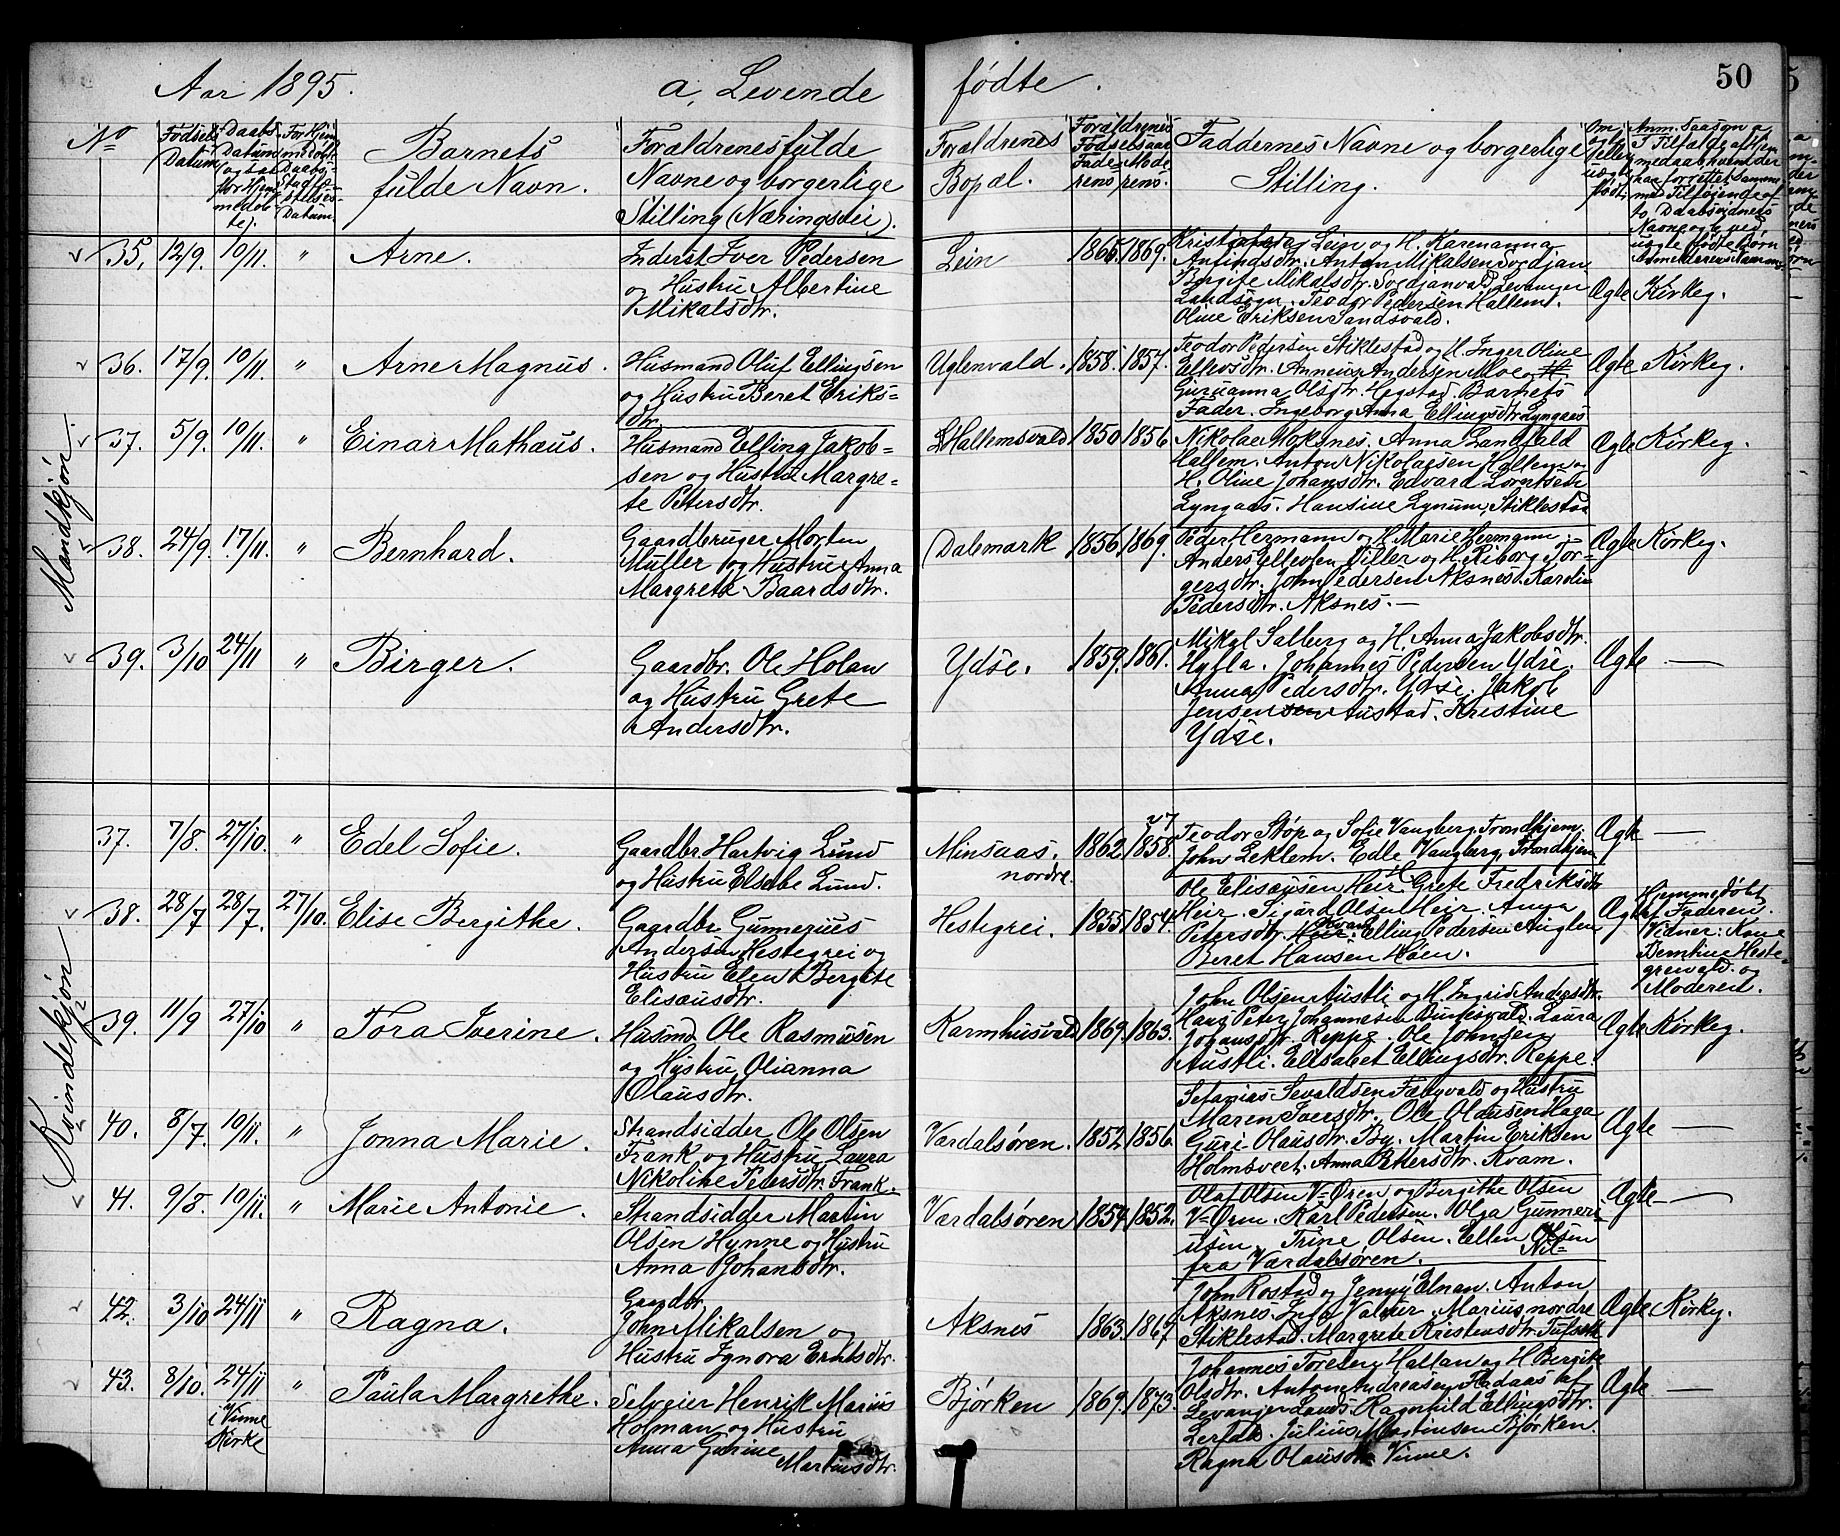 Aar 1895. a, Levende fødte. 50
No
Fødsels Datum
Daabs Datum
Barnets fulde Navn.
Forældrenes fulde Navne og borgerlige Stilling (Næringsvei).
Forældrenes Bopæl.
Forældrenes Fødselsaar
Faderens Moderens.
Faddernes Navne og borgerlige Stilling.
Mandkjøn.
35. 12/9. 10/11. " Arne.
Inderst Iver Pedersen
og Hustru Albertine
Mikalsdtr.
Lein 1865. 1869.
Ægte Kirkeg.
36. 17/9. 10/11. " Arne Magnus.
Husmand Oluf Ellingsen
og Hustru Beret Eriks=
dtr.
Uglenvald. 1858. 1857.
Teodor Pedersen Stiklestad og H. Inger Oline
Ellevsdtr. Anneus Andersen Moe
Guruanna Olsdtr. Hegstad. Barnets
Fader. Ingeborg Anna Ellingsdtr. Lyngaas
Ægte Kirkeg.
37. 5/9. 10/11. " Einar Mathæus.
Husmand Elling Jakob=
sen og Hustru Margre=
te Petersdtr.
Hallemsvald 1850 1856
Hallem. Anton Nikolaisen Hallem og
H. Oline Johansdtr. Edvard Lorentsen
Lyngaas. Hansine Lynum, Stiklestad
Ægte Kirkeg.
38. 24/9. 17/11. " Bernhard.
Gaardbruger Morten
Müller og Hustru Anna
Margrete Baardsdtr.
Dalemark 1856. 1869.
Peder Hermann og H. Marie Hermann.
Anders Ellevsen Viller og H. Riborg Tor=
gersdtr. John Pedersen Aksnes. Karolin
Pedersdtr. Aksnes. —
Ægte Kirkeg.
39. 3/10 24/11 " Birger.
Gaardbr. Ole Holan
og Hustru Grete
Andersdtr.
Ydse. 1859. 1861.
Mikal Salberg og H. Anna Jakobsdtr.
Hylla. Johannes Pedersen Ydse.
Anna Pedersdtr. Ydse. Jakob
Jensen Austad. Kristine
Ydse.
Ægte —
Kvindekjøn
37. 7/8. 27/10. " Edel Sofie.
Gaardbr. Hartvig Lund
og Hustru Elsebe Lund.
Minsaas. nordre. 1862 1858.
Teodor Støp og Sofie Vangberg, Trondhjem.
John Leklem. Edle Vangberg, Trondhjem
Ægte —
38. 28/7 28/7. 27/10. Elise Bergithe.
Gaardbr. Gunnerius
Andersen Hestegrei og
Hustru Elen Bergite
Elisæusdtr.
Hestegrei. 1855 1854.
Ole Elisæusen Heir. Grete Fredriksdtr
Heir. Sigurd Olsen Heir. Anna
Petersdtr. Kvam. Elling Pedersen Auglen
Beret Hansen Høen.
Ægte
Hjemmedøbt
af Faderen.
Vidner: Kone
39. 11/9 27/10 " Tora Iverine.
Husmd. Ole Rasmusen
og Hustru Olianna
Olausdtr.
Karmhusvald 1869. 1863.
John Olsen Austli og H. Ingrid Andersdtr.
Johansdtr. Reppe. Ole Johnsen
Austli. Elisabet Ellingsdtr. Reppe.
Ægte Kirkeg.
40. 8/7. 10/11. " Jonna Marie.
Strandsidder Ole Olsen
Frank og Hustru Laura
Nikoline Petersdtr. Frank.
Værdalsøren. 1852. 1856
Sefanias Sevaldsen Fæbyvald og Hustru
Maren Iversdtr. Ole Olausen Haga
Guri Olausdtr. By. Martin Eriksen
Holmsveet. Anna Pettersdtr. Kvam.
Ægte —
41. 9/8. 10/11. " Marie Antonie.
Strandsidder Martin
Olsen Hynne og Hustru
Anna Johansdtr.
Værdalsøren 1854. 1852.
Olaf Olsen V=Øren og Bergithe Olsen
V=Øren. Karl Pedersen. Olga Gunneri=
usen. Trine Olsen. Ellen Olsen
fra Værdalsøren.
Ægte —
42. 3/10 24/11 " Ragna.
Gaardbr.
John Mikalsen og
Hustru Ignora Erntsdtr.
Aksnes 1863. 1867
Stiklestad. Margrete Kristensdtr. Tufseth
Ægte Kirkeg.
43. 8/10. 24/11 i Vinne Kirke " Paula Margrethe.
Selveier Henrik Marius
Holman og Hustru
Anna Gurine
Martinsdtr.
Bjørken 1869. 1873.
Levanger Lands. Ragnhild Ellingsdtr.
Lerfald. Julius Martinsen Bjørken.
Ragna Olausdtr. Vinne.
Ægte —